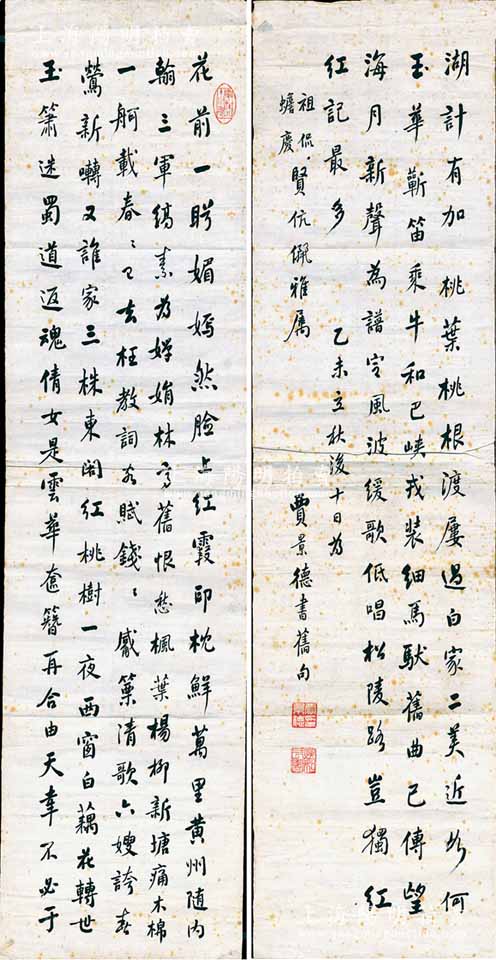 花前一眄媚嫣然臉上紅霞印枕鮮萬里黃州隨內
翰三軍縞素為嬋娟林亭舊恨愁楓葉楊柳新塘痛木棉
一舸載春〻已去枉教詞客賦錢〻觱篥清歌六嫂誇春
鶯新囀又誰家三株東閣紅桃樹一夜西窗白藕花轉世
玉簫迷蜀道返魂倩女是雲華奩簪再合由天幸不必于
湖計有加桃葉桃根渡屢過白家二美近如何
玉華蘄笛乘牛和巴峽戎裝細馬馱舊曲已傳望
海月新聲為譜定風波緩歌低唱松陵路豈獨紅
紅記最多 乙未立秋後十日為
祖侃 蟾慶 賢伉儷雅屬
賈景德書舊句